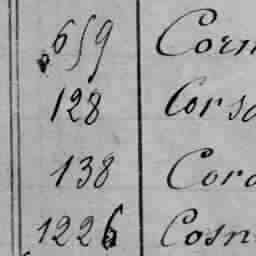 659 Corn
128 Corsa
138 Cord
1226 Cosn